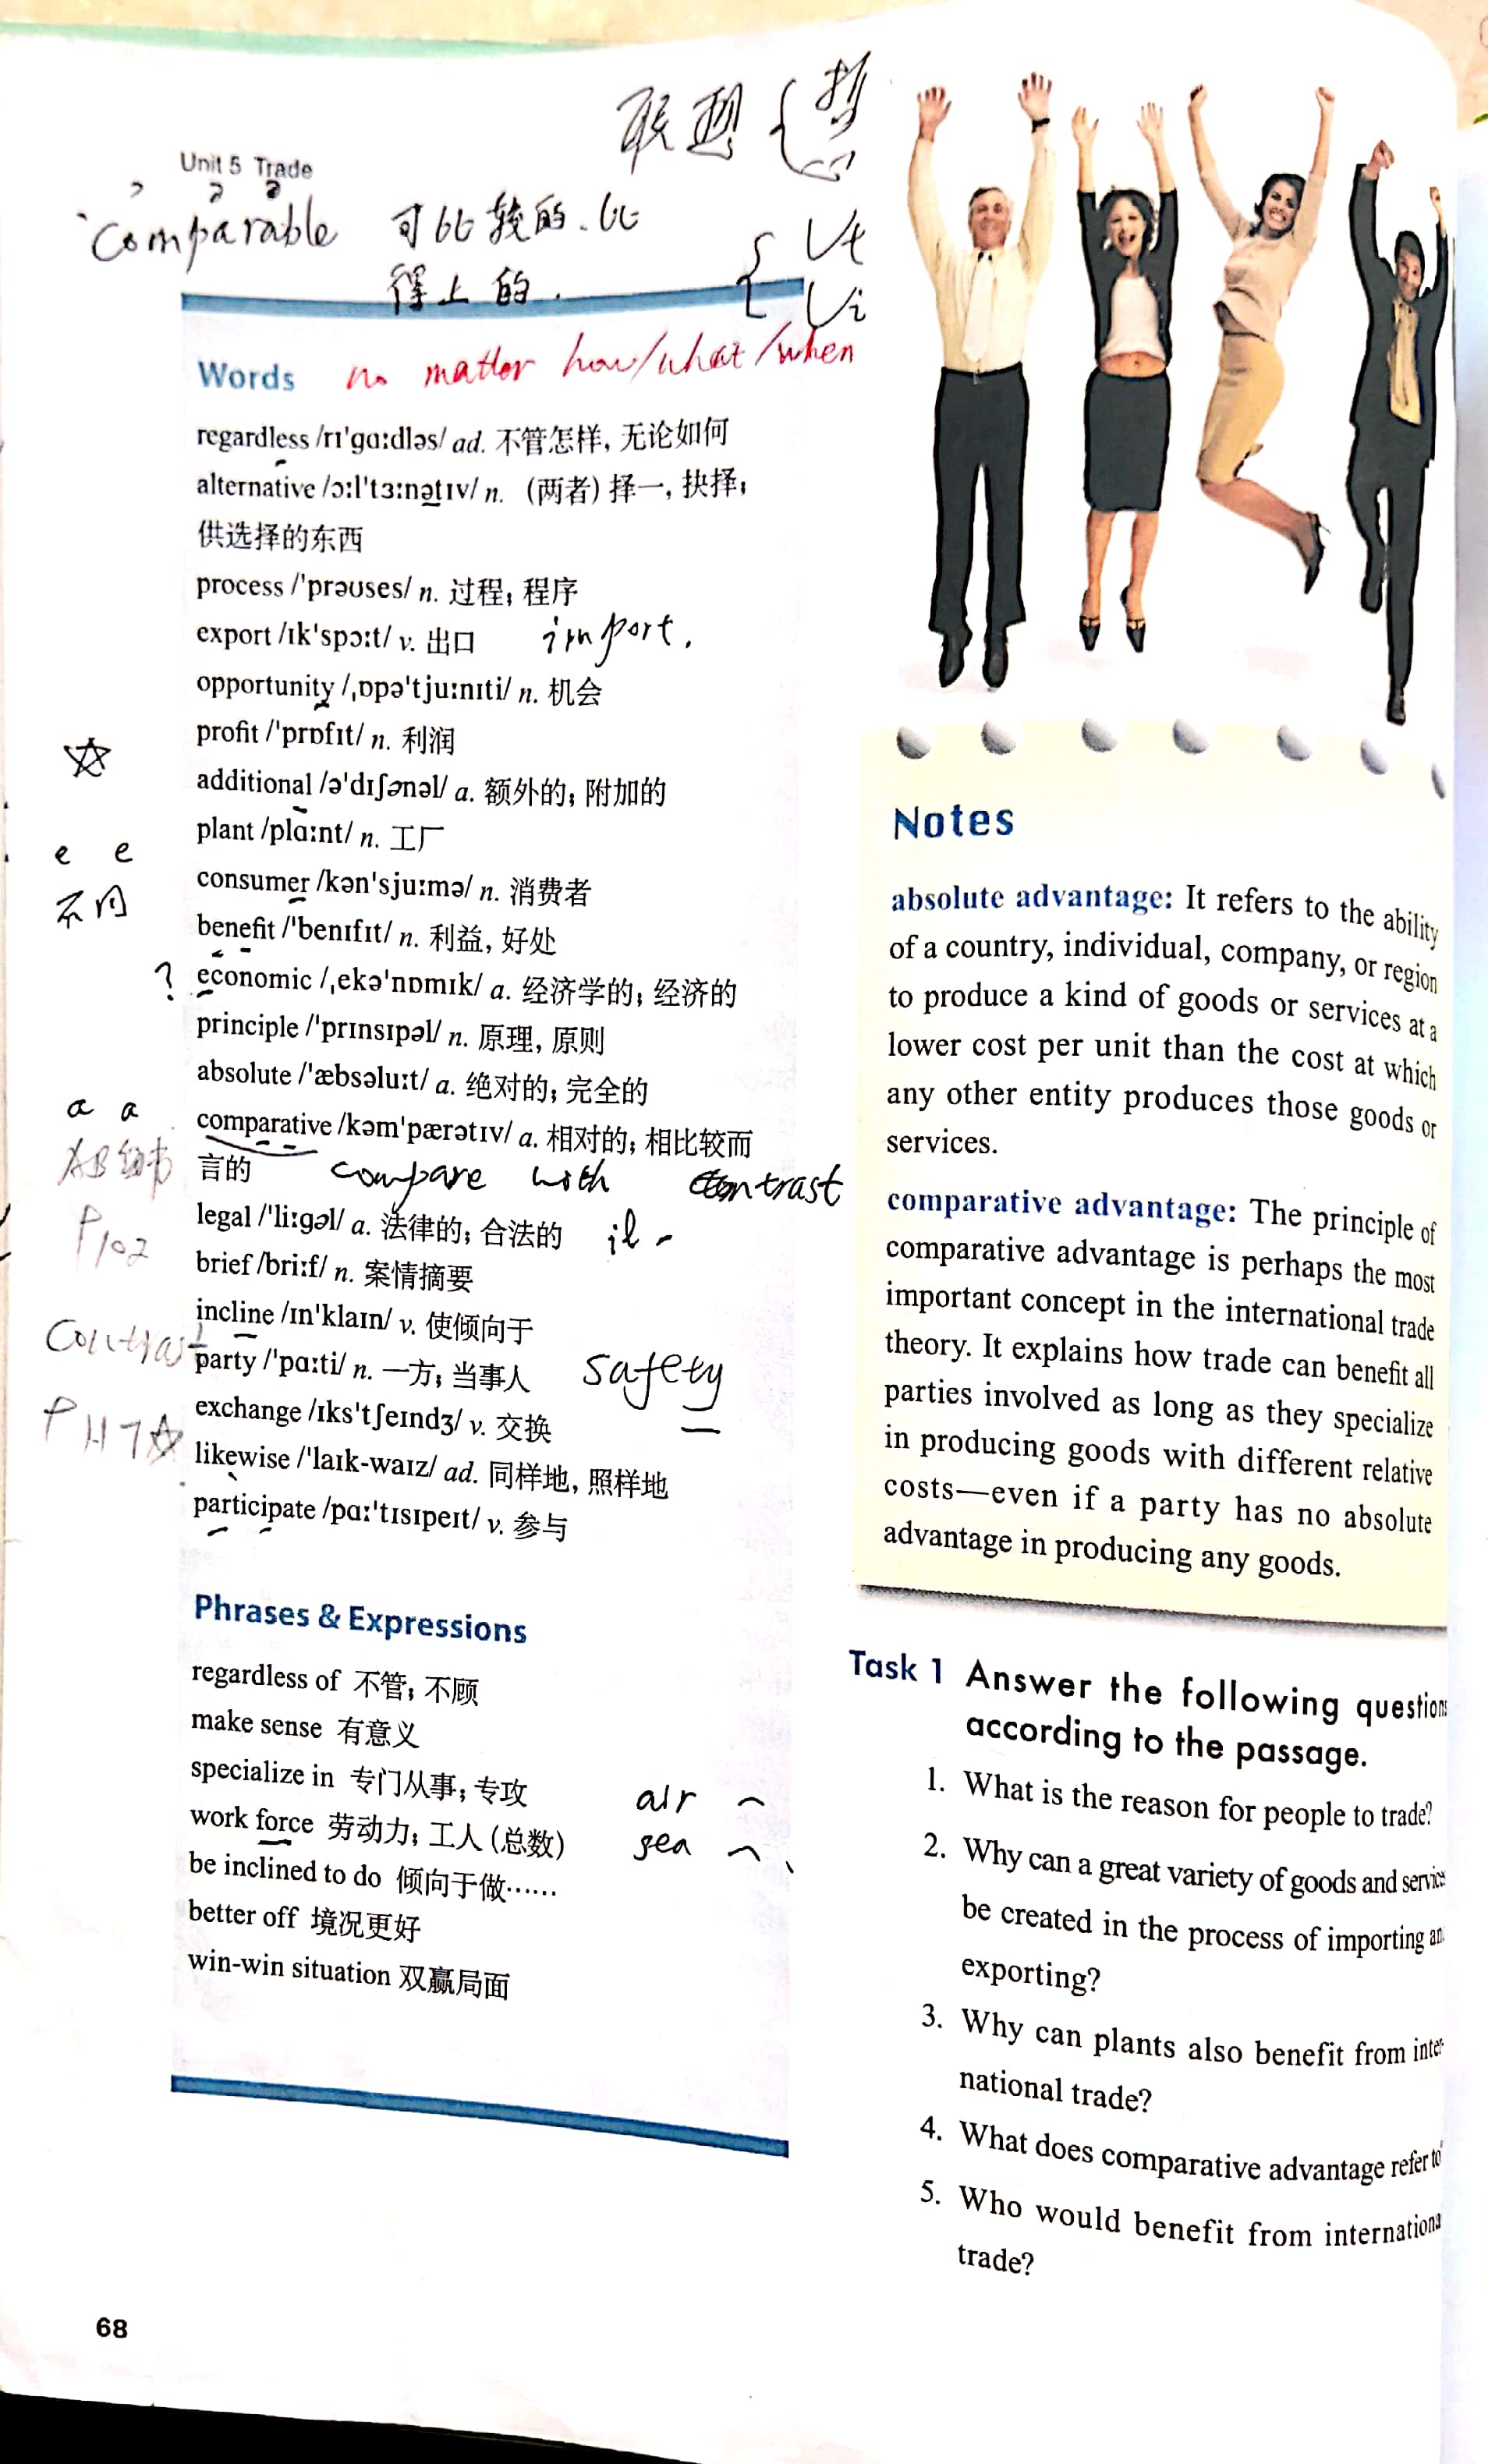 联想 { 哲 心
Unit 5 Trade
comparable 可比较的.比
得上的.
{ Vt
Vi
Words no matter how/what/when
regardless /rɪ'gɑːdləs/ ad. 不管怎样, 无论如何
alternative /ɔːl'tɜːnətɪv/ n. (两者) 择一, 抉择;
供选择的东西
process /'prəʊses/ n. 过程; 程序
export /ɪk'spɔːt/ v. 出口 import.
opportunity /ˌɒpə'tjuːnɪti/ n. 机会
profit /'prɒfɪt/ n. 利润
additional /ə'dɪʃənəl/ a. 额外的; 附加的
plant /plɑːnt/ n. 工厂
e e
consumer /kən'sjuːmə/ n. 消费者
不同
benefit /'benɪfɪt/ n. 利益, 好处
? economic /ˌekə'nɒmɪk/ a. 经济学的; 经济的
principle /'prɪnsɪpəl/ n. 原理, 原则
absolute /'æbsəluːt/ a. 绝对的; 完全的
a a
comparative /kəm'pærətɪv/ a. 相对的; 相比较而
言的 compare with contrast
P102
legal /'liːgəl/ a. 法律的; 合法的 il-
brief /briːf/ n. 案情摘要
contrast
incline /ɪn'klaɪn/ v. 使倾向于
party /'pɑːti/ n. 一方; 当事人 safety
P117
exchange /ɪks'tʃeɪndʒ/ v. 交换
likewise /'laɪk-waɪz/ ad. 同样地, 照样地
participate /pɑː'tɪsɪpeɪt/ v. 参与
Phrases & Expressions
regardless of 不管; 不顾
make sense 有意义
specialize in 专门从事; 专攻 air ~
work force 劳动力; 工人 (总数) sea ~
be inclined to do 倾向于做……
better off 境况更好
win-win situation 双赢局面
68
Notes
absolute advantage: It refers to the ability
of a country, individual, company, or region
to produce a kind of goods or services at a
lower cost per unit than the cost at which
any other entity produces those goods or
services.
comparative advantage: The principle of
comparative advantage is perhaps the most
important concept in the international trade
theory. It explains how trade can benefit all
parties involved as long as they specialize
in producing goods with different relative
costs—even if a party has no absolute
advantage in producing any goods.
Task 1 Answer the following questions
according to the passage.
1. What is the reason for people to trade?
2. Why can a great variety of goods and service
be created in the process of importing an
exporting?
3. Why can plants also benefit from inter-
national trade?
4. What does comparative advantage refer to
5. Who would benefit from internationa
trade?